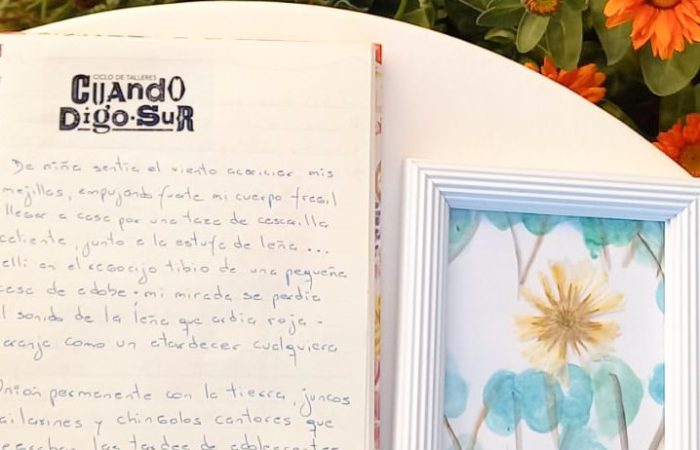 CICLO DE TALLERES
CUANDO
Digo·SUR
De niña sentia el viento acariciar mis
mejillas, empujando fuerte mi cuerpo fragil
llegar a casa por una taza de cascarilla
caliente, junto a la estufa de leña ...
alli en el regocijo tibio de una pequeña
casa de adobe; mi mirada se perdia
al sonido de la leña que ardia roja -
naranja como un atardecer cualquiera
Unión permanente con la tierra, juncos
bailarines y chingolos cantores que
las tardes de adolescentes